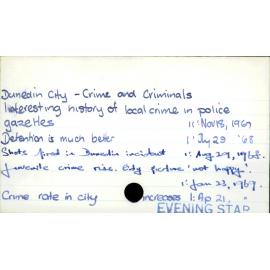 Dunedin City - Crime and Criminals
Interesting history of local crime in police
gazettes 11: Nov 18, 1967
Detention is much better 1: Jly 29 '68
Shots fired in Dunedin incident 1: Aug 29, 1968.
Juvenile crime rise. City picture "not happy".
1: Jan 23, 1969.
Crime rate in city increases 1: Ap 21, "
EVENING STAR